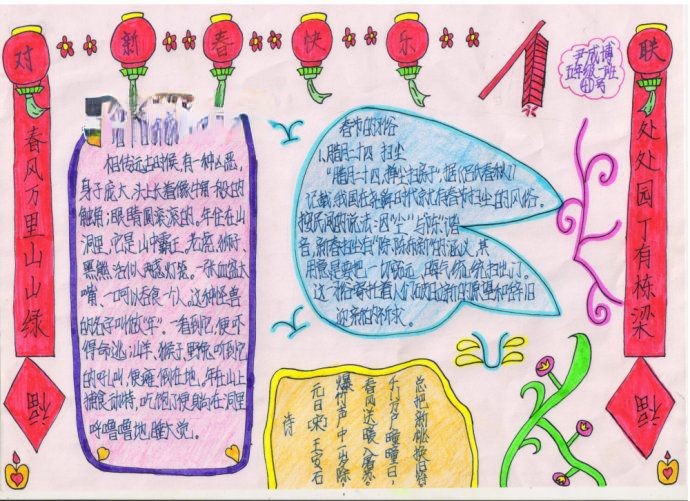 对 新春快乐 联
尹成博
五年级二班
40号
春风万里山山绿
处处园丁有栋梁
福
福
相传远古时候，有一种凶恶，
身子庞大，头上长着像
触角；眼睛圆滚滚的。年住在山
洞里，它是山中霸王。老虎、狮子、
黑熊
嘴，一口可以吞食一个人，这种怪兽
的名字叫做“年”。一看到它便吓
得命逃；山羊、猴子、野兔，听到它
的吼叫，便瘫倒在地。年在山上
捕食动物，吃饱了便躺在洞里
呼噜噜地睡大觉。
春节的习俗
1、腊月二十四 扫尘
“腊月二十四，掸尘扫房子”据《吕氏春秋》
记载，我国在尧舜时代就有春节扫尘的风俗。
按民间的说法：因“尘”与“陈”谐
音，新春扫尘有“除陈布新”的涵义，其
用意是要把一切穷运、晦气统统扫出门。
这一习俗寄托着人们破旧立新的愿望和辞旧
迎新的祈求。
诗
元日（宋）王安石
爆竹声中一岁除，
春风送暖入屠苏。
千门万户曈曈日，
总把新桃换旧符。